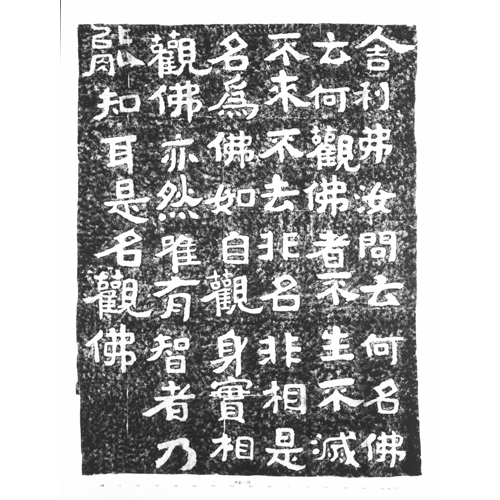 舍利弗汝問云何名佛
云何觀佛者不生不滅
不来不去非名非相是
名爲佛如自觀身實相
觀佛亦然唯有智者乃
能知耳是名觀佛